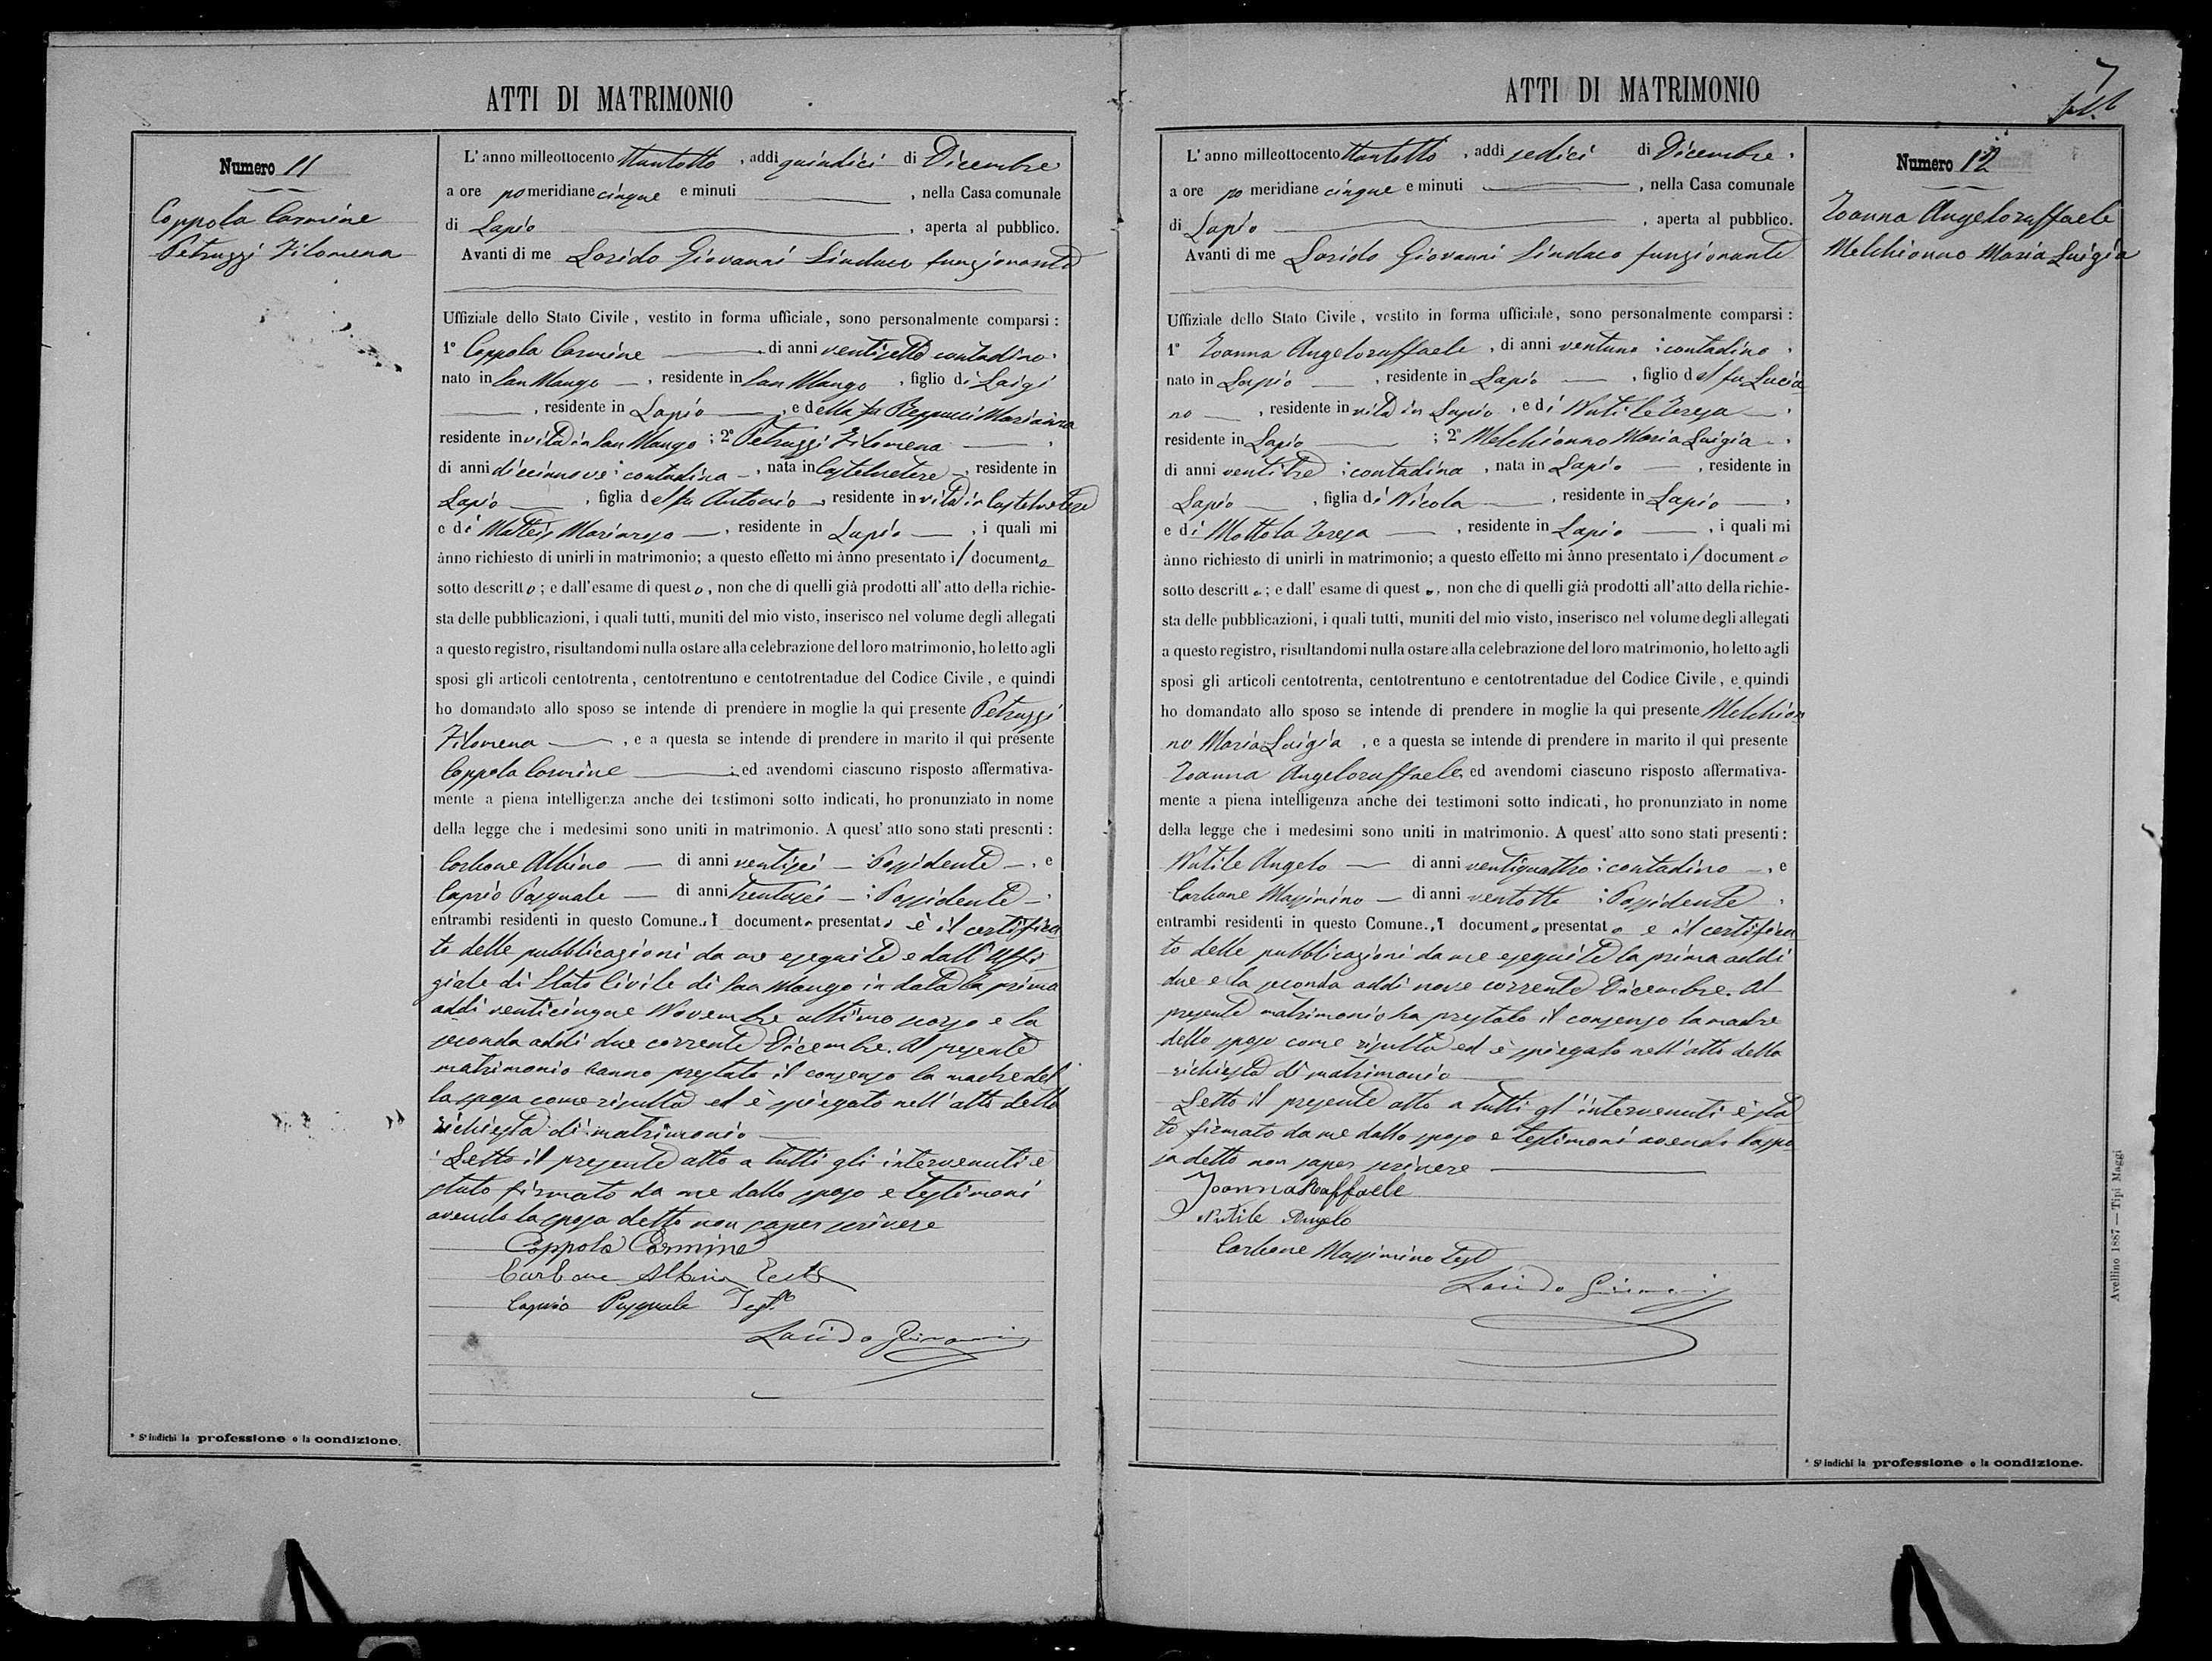 ATTI DI MATRIMONIO
Numero 11
Coppola Carmine
Petruzzi Filomena
L'anno milleottocento ttantotto, addi quindici di Dicembre
a ore pomeridiane cinque e minuti —, nella Casa comunale
di Lapio —, aperta al pubblico.
Avanti di me Lorido Giovanni Sindaco funzionante
Uffiziale dello Stato Civile, vestito in forma ufficiale, sono personalmente comparsi:
1° Coppola Carmine —, di anni ventisette contadino
nato in San Mango —, residente in San Mango, figlio di Luigi
—, residente in Lapio —, e della fu Mariarosa
residente in vita in San Mango; 2° Petruzzi Filomena —,
di anni diecinnove: contadina —, nata in Castelvetere —, residente in
Lapio —, figlia del fu Antonio, residente in vita in Castelvetere
e di Matteis Mariarosa —, residente in Lapio —, i quali mi
ànno richiesto di unirli in matrimonio; a questo effetto mi ànno presentato il documento
sotto descritto; e dall'esame di questo, non che di quelli già prodotti all'atto della richie-
sta delle pubblicazioni, i quali tutti, muniti del mio visto, inserisco nel volume degli allegati
a questo registro, risultandomi nulla ostare alla celebrazione del loro matrimonio, ho letto agli
sposi gli articoli centotrenta, centotrentuno e centotrentadue del Codice Civile, e quindi
ho domandato allo sposo se intende di prendere in moglie la qui presente Petruzzi
Filomena —, e a questa se intende di prendere in marito il qui presente
Coppola Carmine —; ed avendomi ciascuno risposto affermativa-
mente a piena intelligenza anche dei testimoni sotto indicati, ho pronunziato in nome
della legge che i medesimi sono uniti in matrimonio. A quest'atto sono stati presenti:
Carbone Albino — di anni ventisei — : Possidente —, e
Caprio Pasquale — di anni trentasei — : Possidente —,
entrambi residenti in questo Comune. I documento presentato è il certifica
to delle pubblicazioni da me eseguite e dall'Uffi
ziale di Stato Civile di San Mango in data la prima
addi venticinque Novembre ultimo scorso e la
seconda addi due corrente Dicembre. Al presente
matrimonio hanno prestato il consenso la madre del
la sposa come risulta ed è spiegato nell'atto della
richiesta di matrimonio —
Letto il presente atto a tutti gli intervenuti è
stato firmato da me dallo sposo e testimoni
avendo la sposa detto non saper scrivere
Coppola Carmine
Carbone Albino Teste
Caprio Pasquale Testo
Lorido Giovanni
* Si indichi la professione o la condizione.
ATTI DI MATRIMONIO
7
Numero 12
Ioanna Angeloraffaele
Melchionno Maria Luigia
L'anno milleottocento ttantotto, addi sedici di Dicembre
a ore pomeridiane cinque e minuti —, nella Casa comunale
di Lapio —, aperta al pubblico.
Avanti di me Lorido Giovanni Sindaco funzionante
Uffiziale dello Stato Civile, vestito in forma ufficiale, sono personalmente comparsi:
1° Ioanna Angeloraffaele, di anni ventuno: contadino
nato in Lapio —, residente in Lapio —, figlio del fu Lucia
no —, residente in vita in Lapio, e di Nutile Teresa —,
residente in Lapio —; 2° Melchionno Maria Luigia —,
di anni ventitre: contadina, nata in Lapio —, residente in
Lapio —, figlia di Nicola —, residente in Lapio —,
e di Mottola Teresa —, residente in Lapio —, i quali mi
ànno richiesto di unirli in matrimonio; a questo effetto mi ànno presentato il documento
sotto descritto; e dall'esame di questo, non che di quelli già prodotti all'atto della richie-
sta delle pubblicazioni, i quali tutti, muniti del mio visto, inserisco nel volume degli allegati
a questo registro, risultandomi nulla ostare alla celebrazione del loro matrimonio, ho letto agli
sposi gli articoli centotrenta, centotrentuno e centotrentadue del Codice Civile, e quindi
ho domandato allo sposo se intende di prendere in moglie la qui presente Melchion
no Maria Luigia, e a questa se intende di prendere in marito il qui presente
Ioanna Angeloraffaele; ed avendomi ciascuno risposto affermativa-
mente a piena intelligenza anche dei testimoni sotto indicati, ho pronunziato in nome
della legge che i medesimi sono uniti in matrimonio. A quest'atto sono stati presenti:
Nutile Angelo — di anni ventiquattro: contadino —, e
Carbone Massimino — di anni ventotto: Possidente,
entrambi residenti in questo Comune. I documento presentato è il certifica
to delle pubblicazioni da me eseguite la prima addi
due e la seconda addi nove corrente Dicembre. Al
presente matrimonio ha prestato il consenso la madre
dello sposo come risulta ed è spiegato nell'atto della
richiesta di matrimonio —
Letto il presente atto a tutti gl'intervenuti è sta
to firmato da me dallo sposo e testimoni avendo la spo
sa detto non saper scrivere —
Joanna Raffaele
Nutile Angelo
Carbone Massimino Test
Lorido Giovanni
* Si indichi la professione o la condizione.
Avellino 1887 — Tipi Maggi